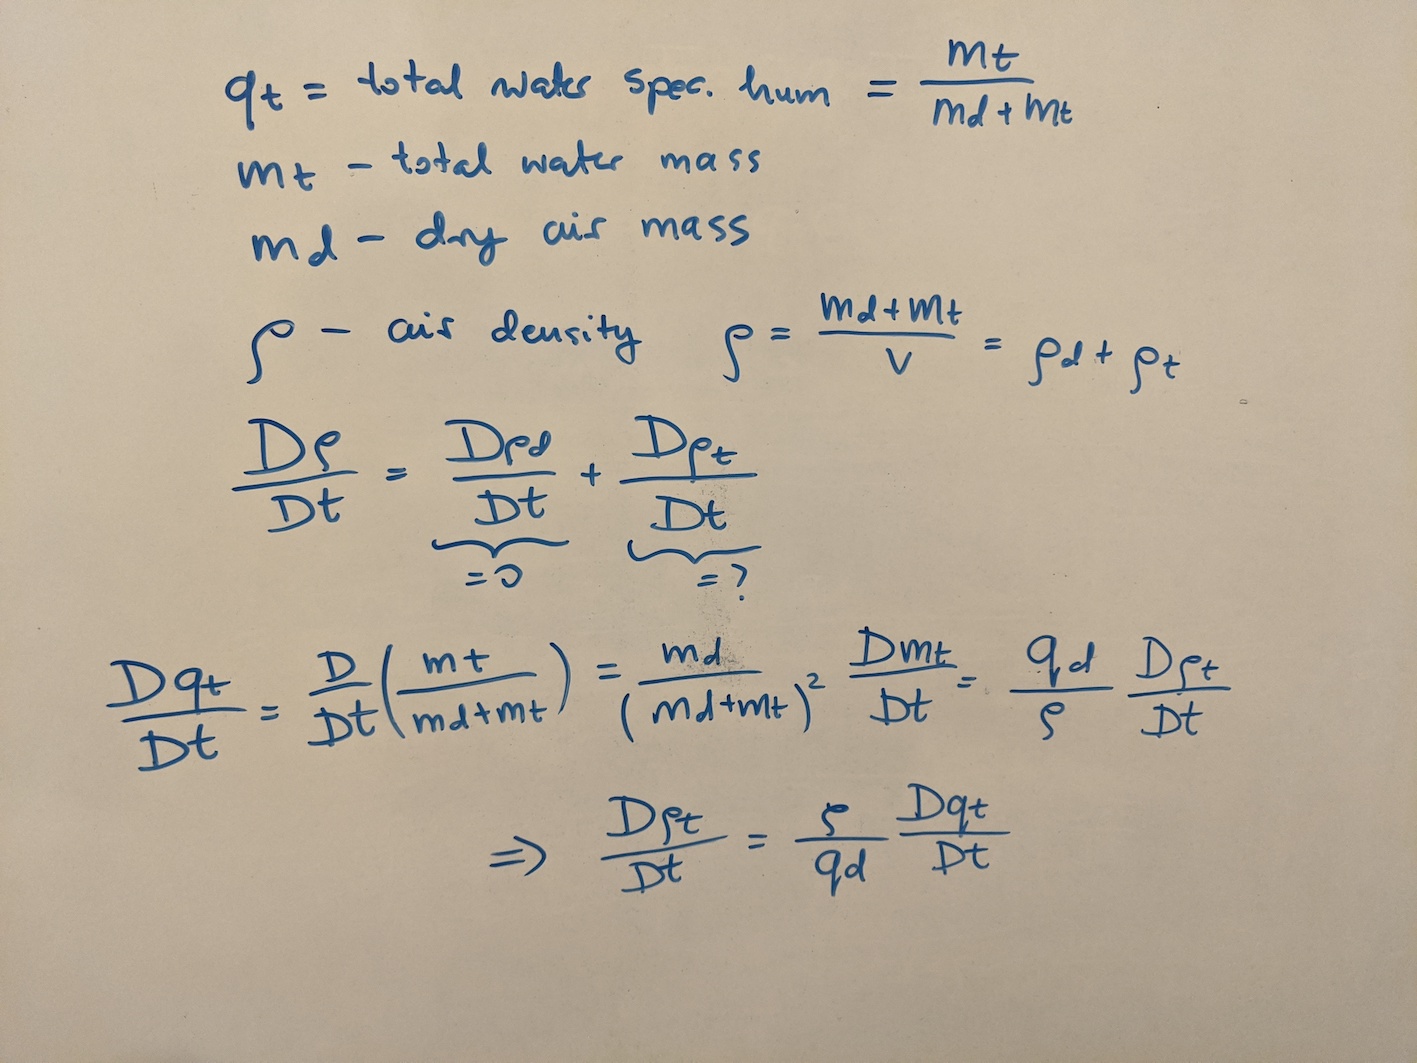 qt = total water spec. hum = mt / (md + mt)
mt – total water mass
md – dry air mass
ρ – air density ρ = (md + mt) / V = ρd + ρt
Dρ/Dt = Dρd/Dt + Dρt/Dt
= 0 = ?
Dqt/Dt = D/Dt (mt / (md + mt)) = md / (md + mt)² Dmt/Dt = qd/ρ Dρt/Dt
⇒ Dρt/Dt = ρ/qd Dqt/Dt